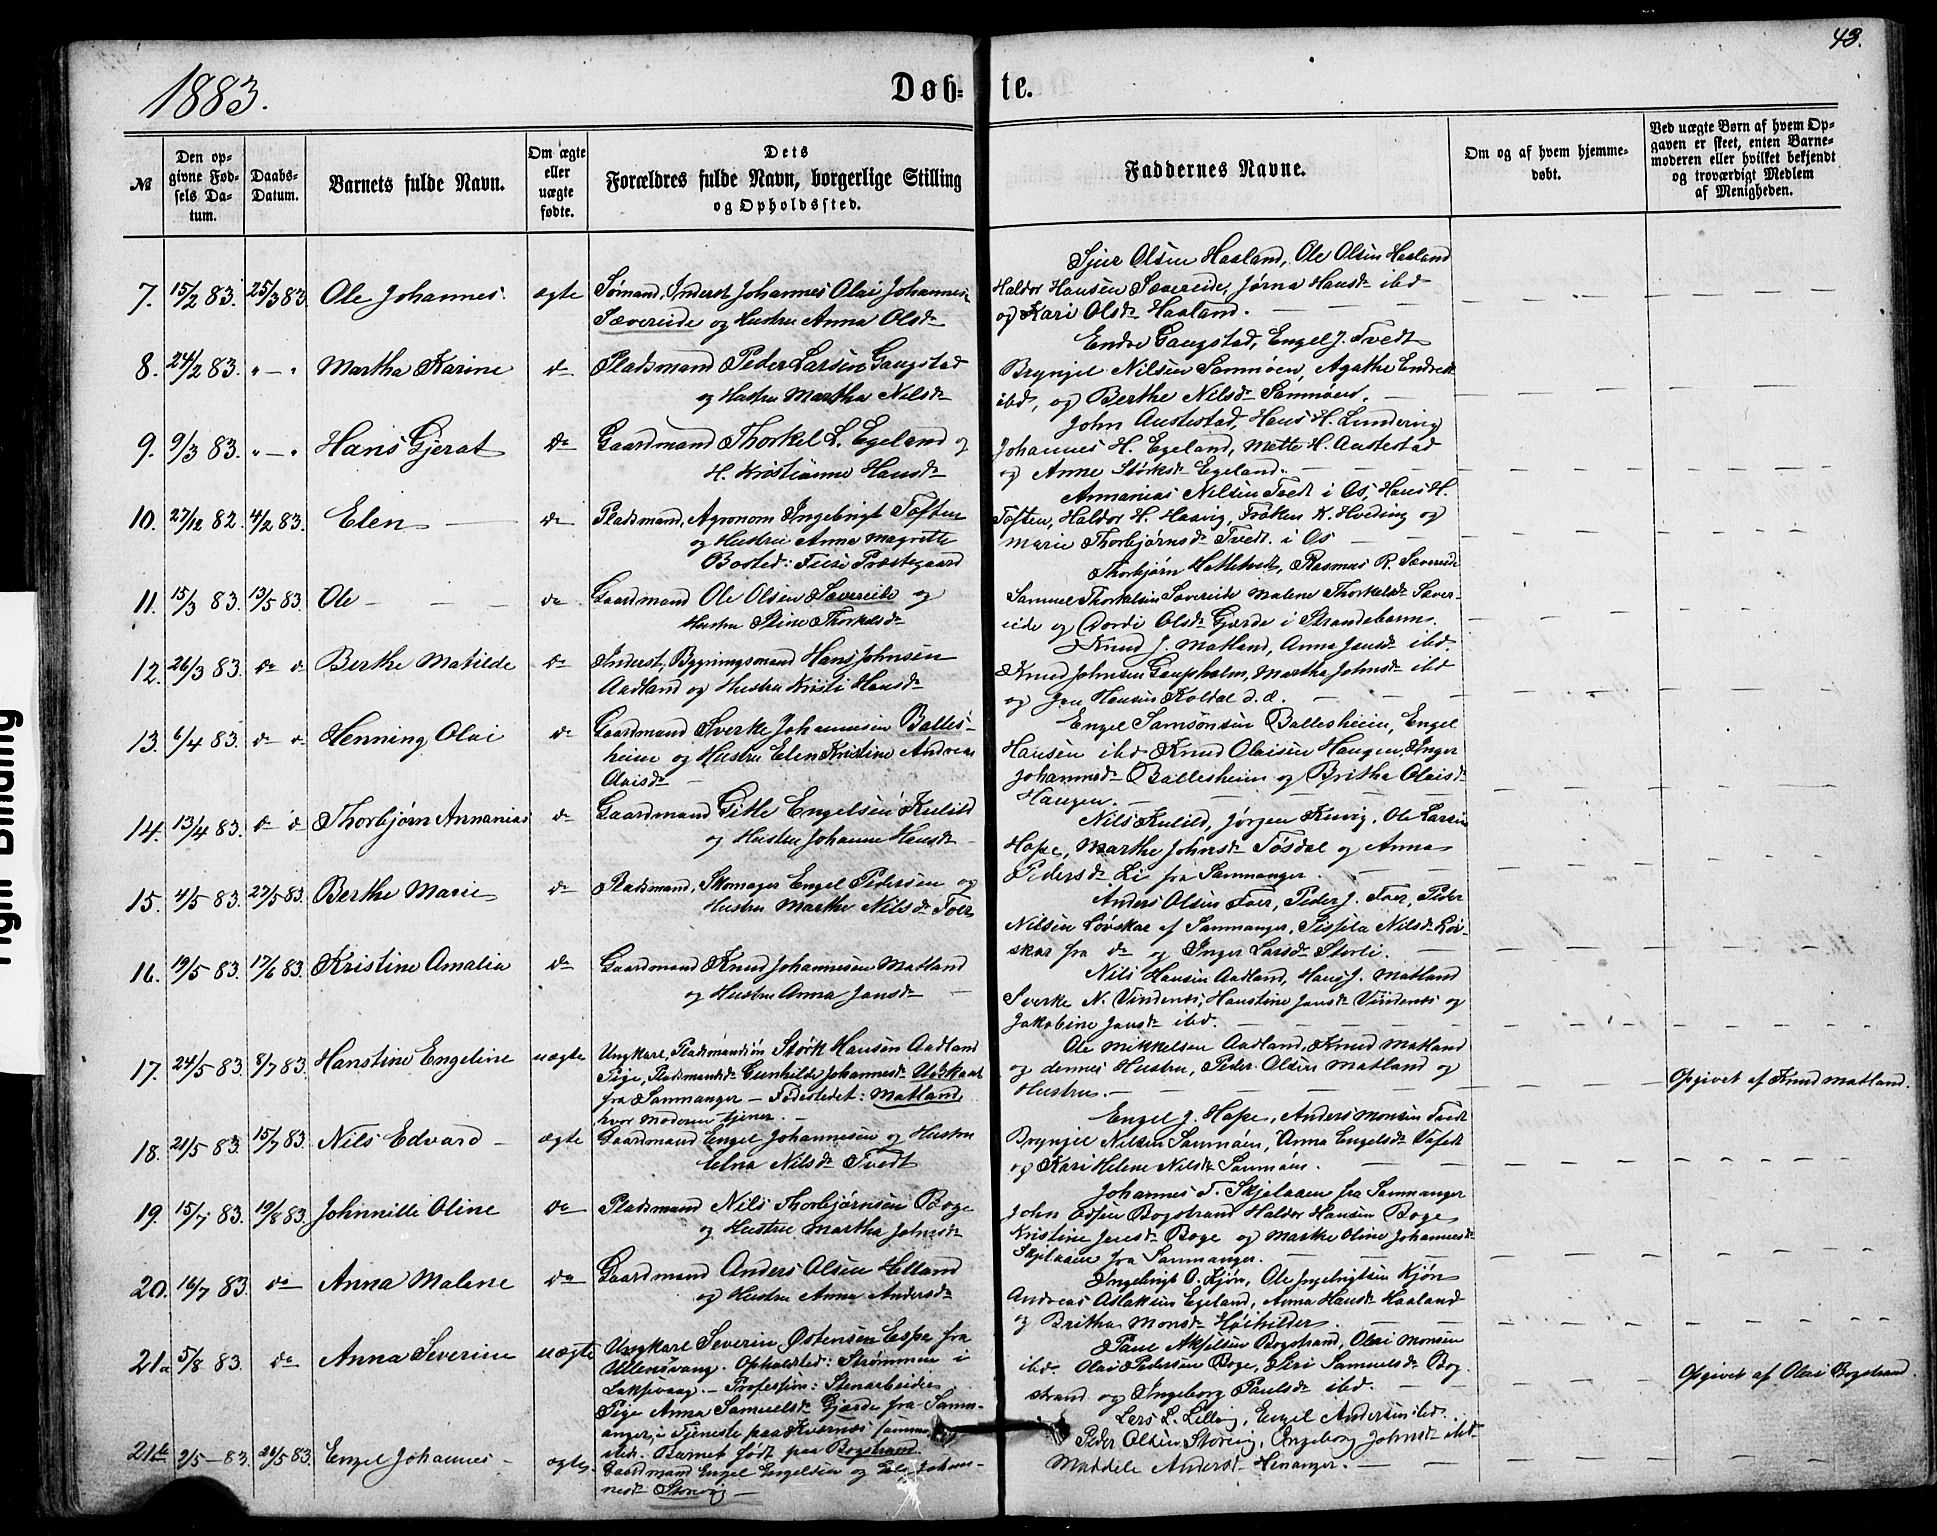 43.
1883.
Døb- te.
№
Den opgivne Fødsels Datum.
Daabs-Datum.
Barnets fulde Navn.
Om ægte eller uægte fødte.
Dets Forældres fulde Navn, borgerlige Stilling og Opholdssted.
Faddernes Navne.
Om og af hvem hjemmedøbt.
Ved uægte Børn af hvem Opgaven er skeet, enten Barnemoderen eller hvilket bekjendt og troværdigt Medlem af Menigheden.
7. 15/2 83. 25/3 83. Ole Johannes. ægte Sømand, Inderst Johannes Olai Johannes.
Sævereide og Hustru Anna Olsdr
Sjur Olsen Haaland, Ole Olsen Haaland
Haldor Hansen Sævereide, Jørna Hansdr ibd
og Kari Olsdr Haaland.
8. 24/2 83. " — " Martha Karine do Pladsmand Peder Larsen Gaugstad
og Hustru Martha Nilsdr
Endre Gaugstad, Engel J. Tvedt
Brynjel Nilsen Samnøen, Agathe Endresdr
ibd, og Berthe Nilsdr Samnøen.
9. 9/3 83. " — " Hans Gjerat do Gaardmand Thorkel L. Egeland og
H. Kristianne Hansdr
John Austestad, Hans H. Lundering
Johannes H. Egeland, Mette H. Austestad
og Anne Størksdr Egeland.
10. 27/12 82. 4/2 83. Elen do Pladsmand, Agronom Ingebrigt Toften
og Hustru Anne Magrette
Bosted: Fuse Præstegaard
Annanias Nilsen Tvedt i Os, Hans H.
Toften, Haldor H. Haavig, Frøken K. Hveding og
Marie Thorbjørnsdr Tvedt i Os
11. 15/3 83. 13/5 83. Ole do Gaardmand Ole Olsen Sævereide og
Hustru Stine Thorkelsdr
Thorbjørn Hatletvedt, Rasmus R. Sævereide
Samuel Thorkelsen Sævereide Malene Thorkelsdr Sæver-
eide og Dordi Olsdr Gjerde i Strandebarm.
12. 26/3 83. do do Berthe Matilde do Inderst, Bygningsmand Hans Johnsen
Aadland og Hustru Kristi Hansdr
Knud J. Matland, Anna Jansdr ibd.
Knud Johnsen Gaupholm, Martha Johnsdr ibd
og Jan Hansen Koldal d. æ.
13. 6/4 83. do do Henning Olai do Gaardmand Sverke Johannesen Balles-
heim og Hustru Elen Kristine Andrea
Olaisdr
Engel Samsonsen Ballesheim, Engel
Hansen ibd Knud Olaisen Haugen, Inger
Johannesdr Ballesheim og Britha Olaisdr
Haugen.
14. 13/4 83. do do Thorbjørn Annanias do Gaardmand Gitle Engelsen Kulild
og Hustru Johanne Hansdr
Nils Kulild, Jørgen Kuvig, Ole Larsen
Hope, Marthe Johnsdr Tøsdal og Anna
Pedersdr Li fra Sammanger.
15. 4/5 83. 27/5 83. Berthe Marie do Pladsmand, Skomager Engel Pedersen og
Hustru Marthe Nilsdr Toer
Anders Olsen Toer, Peder J. Toer, Peder
Nilsen Løvskar af Sammanger, Sissela Nilsdr Løv-
skar fra do og Inger Larsdr Storli.
16. 19/5 83. 17/6 83. Kristine Amalia do Gaardmand Knud Johannesen Matland
og Hustru Anna Jansdr
Nils Hansen Aadland, Hans J. Matland
Sverke N. Vindenes, Hanstine Jansdr Vindenes og
Jakobine Jansdr ibd.
17. 24/5 83. 8/7 83. Hanstine Engeline uægte Ungkarl, Pladsmandsøn Størk Hansen Aadland
Pige, Pladsmandsdr Gunhilde Johannesdr
fra Sammanger — Fødestedet: Matland,
hvor Moderen tjener.
Ole Mikkelsen Aadland, Knud Matland
og dennes Hustru, Peder Olsen Matland og
Hustru.
Opgivet af Knud Matland.
18. 21/5 83. 15/7 83. Nils Edvard ægte Gaardmand Engel Johannesen og Hustru
Elna Nilsdr Tvedt
Engel J. Hope, Anders Monsen Tvedt
Brynjel Nilsen Samnøen, Anna Engelsdr Tvedt
og Kari Helene Nilsdr Samnøen.
19. 15/7 83. 19/8 83. Johnnille Oline do Pladsmand Nils Thorbjørnsen Boge
og Hustru Martha Johnsdr
Johannes T. Skjelaaen fra Sammanger
John Edsen Bogstrand Haldor Hansen Boge
Kristine Jensdr Boge og Marthe Oline Johannesdr
Skjelaaen fra Sammanger.
20. 16/7 83. do Anna Malene do Gaardmand Anders Olsen Helland
og Hustru Anna Andersdr
Ingebrigt O. Kjøn, Ole Ingebrigtsen Kjøn
Andreas Aslaksen Egeland, Anna Hansdr Haaland
og Britha Monsdr Høikilder.
21a 5/8 83. do Anna Severine uægte Ungkarl Severin Østensen Espe fra
Ullensvang. Opholdsted: Strømmen i
Laksevaag. — Profession: Stenarbeider.
Pige Anna Samuelsdr Gjerde fra Samm-
anger, i Tjeneste paa Kvernes samme-
sted. Barnet født paa Bogstrand
Paul Akselsen Bogstrand, Olai Monsen
ibd. Olai Pedersen Boge, Siri Samuelsdr Bog-
strand og Ingeborg Paulsdr ibd.
Opgivet af Olai Bogstrand.
21b 2/5 — 83. 21/5 83. Engel Johannes ægte. Gaardmand Engel Engelsen og Johan-
nesdr Storvig
Lars L. Lillvig, Engel Andersen ibd.
Peder Olsen Storvig, Ingeborg Johnsdr ibd.
Maddele Andersdr Henanger.